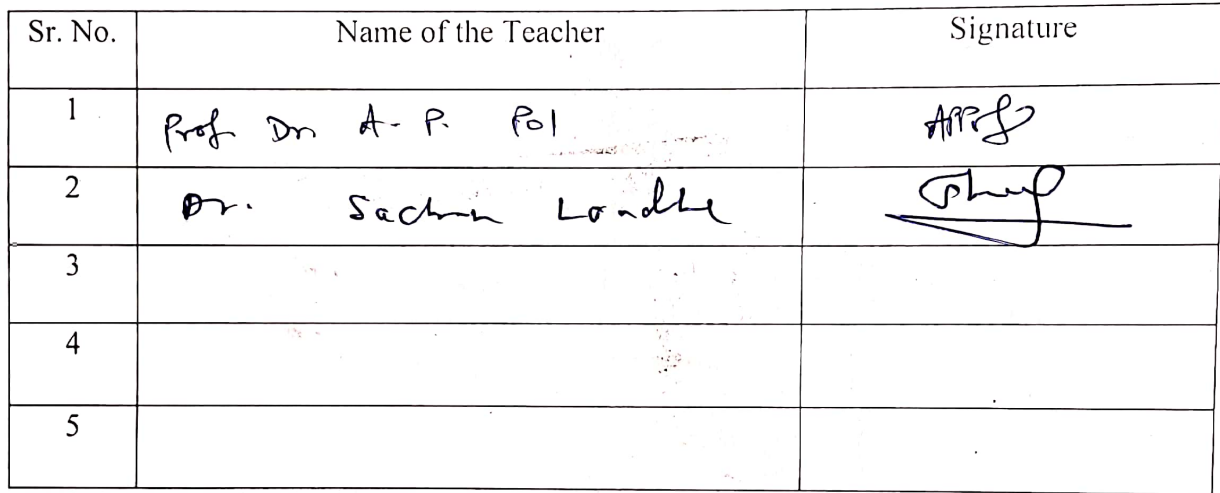 Sr. No. Name of the Teacher Signature
1 Prof Dr A. P. Pol
2 Dr. Sachin Londhe
3
4
5